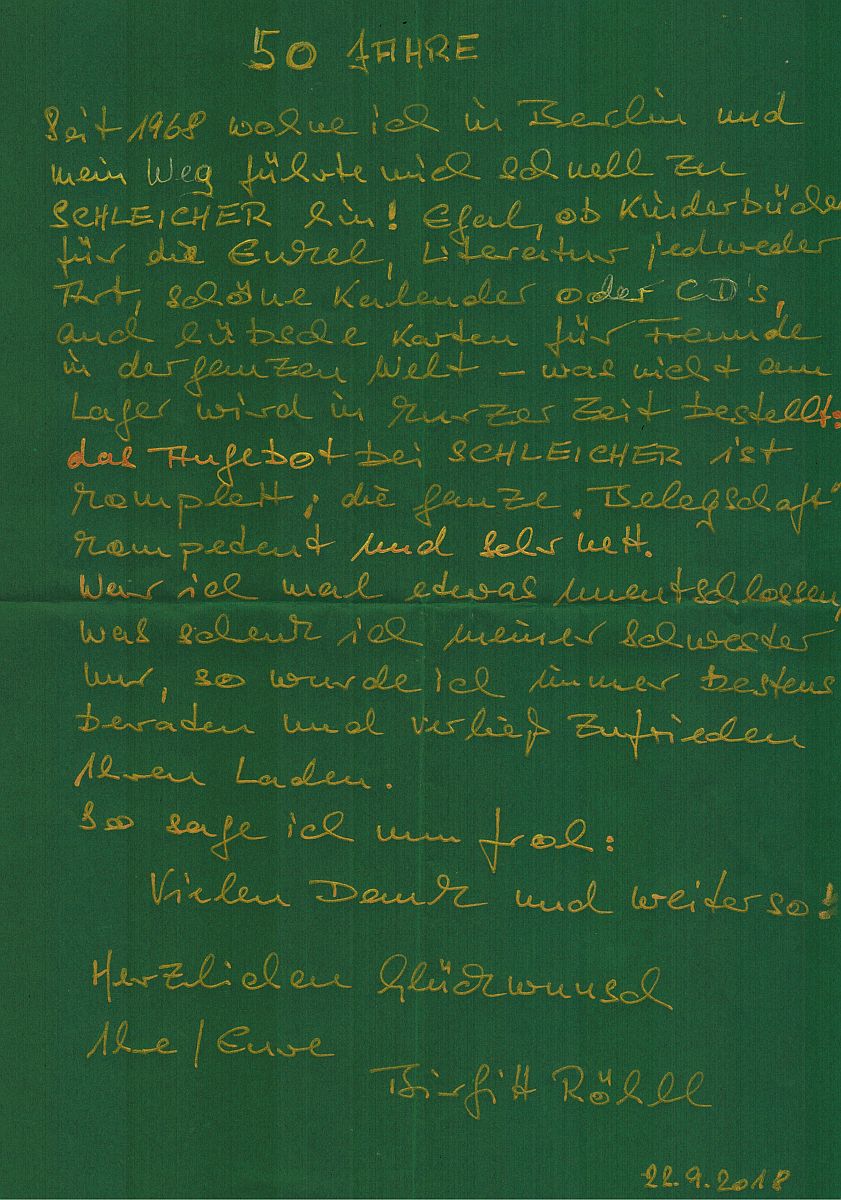 50 JAHRE
Seit 1968 wohne ich in Berlin und
mein Weg führte mich schnell zu
SCHLEICHER hin! Egal, ob Kinderbücher
für die Enkel, Literatur jedweder
Art, schöne Kalender oder CD's,
auch hübsche Karten für Freunde
in der ganzen Welt – was nicht am
Lager wird in kurzer Zeit bestellt:
das Angebot bei SCHLEICHER ist
komplett, die ganze „Belegschaft"
kompetent und sehr nett.
War ich mal etwas unentschlossen,
was schenk ich meiner Schwester
nur, so wurde ich immer bestens
beraten und verließ zufrieden
Ihren Laden.
So sage ich nun froh:
Vielen Dank und weiter so!
Herzlichen Glückwunsch
Ihre / Eure
Birgitt Röhll
22.9.2018